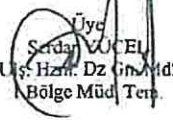 Üye
Serdar YÜCEL
Ulş. Hzm. Dz
Bölge Müd. Tem.